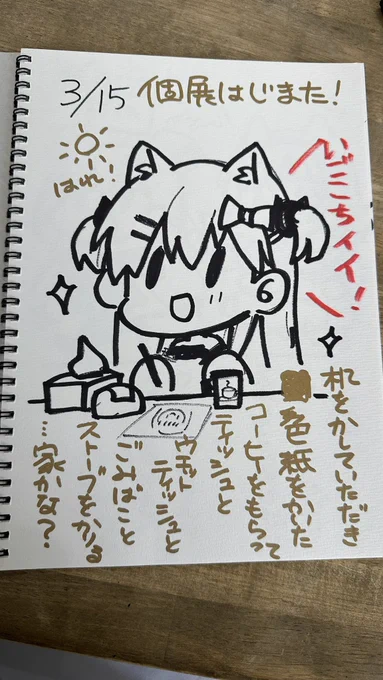 3/15 個展はじまた!
はれ!
いごこちイイ!
机をかしていただき
色紙をかいた
コーヒーをもらって
ティッシュと
ウェットティッシュと
ごみばこと
ストーブをかりる
…家かな?